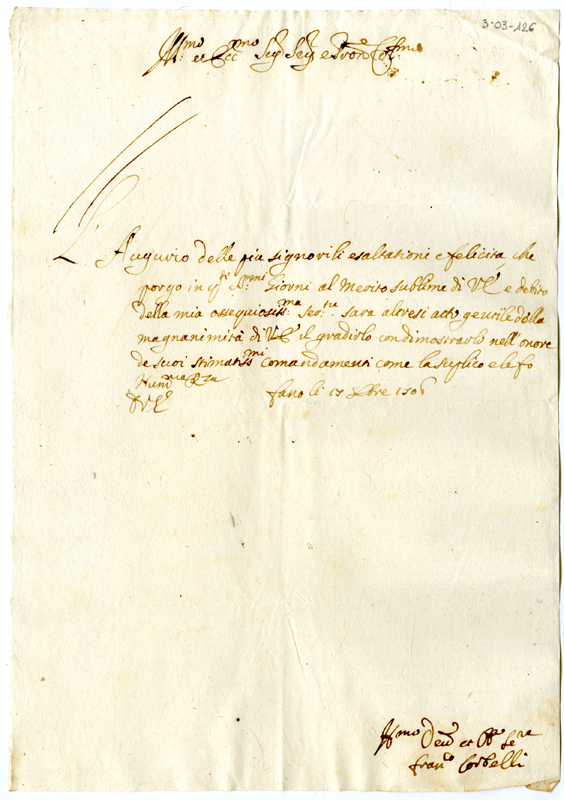 3-03-126
Ill.mo et Ecc.mo Sig.r Sig.r e Pron.e Col.mo
L'Augurio delle più signorili esaltationi e felicità, che
porgo in q.ti S.mi Giorni al Merito sublime di V.E. e debito
della mia ossequiosiss.ma Ser.tù sara altresi acto gentile della
magnanimità di V.E. il gradirlo con dimostrarlo nell'onore
de suoi stimatiss.mi Comandamenti come la suplico e le fo
Hum.ma Rza
D V.E. fano li 17 Xbre 1706
Dev.o et Ob.o Se.re
Fran.co Corbelli